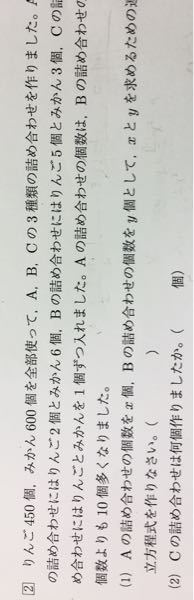 2 りんご450個，みかん600個を全部使って，A，B，Cの3種類の詰め合わせを作りました。A
の詰め合わせにはりんご2個とみかん6個，Bの詰め合わせにはりんご5個とみかん3個，Cの詰
め合わせにはりんごとみかんを1個ずつ入れました。Aの詰め合わせの個数は，Bの詰め合わせの
個数よりも10個多くなりました。
(1) Aの詰め合わせの個数をx個，Bの詰め合わせの個数をy個として，xとyを求めるための連
立方程式を作りなさい。（　　　）
(2) Cの詰め合わせは何個作りましたか。（　　　個）